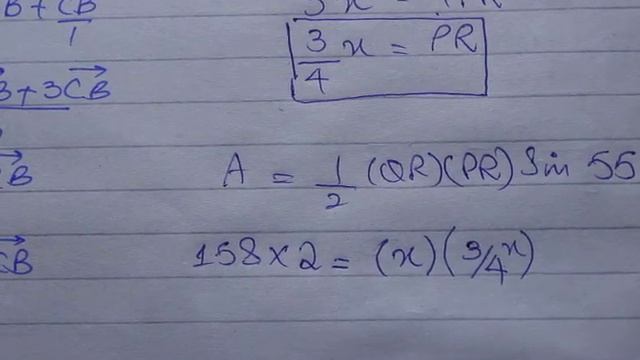 B + CB/1
3/4 x = PR
B + 3CB
A = 1/2 (QR)(PR) Sin 55
CB
158 × 2 = (x)(3/4 x)
CB